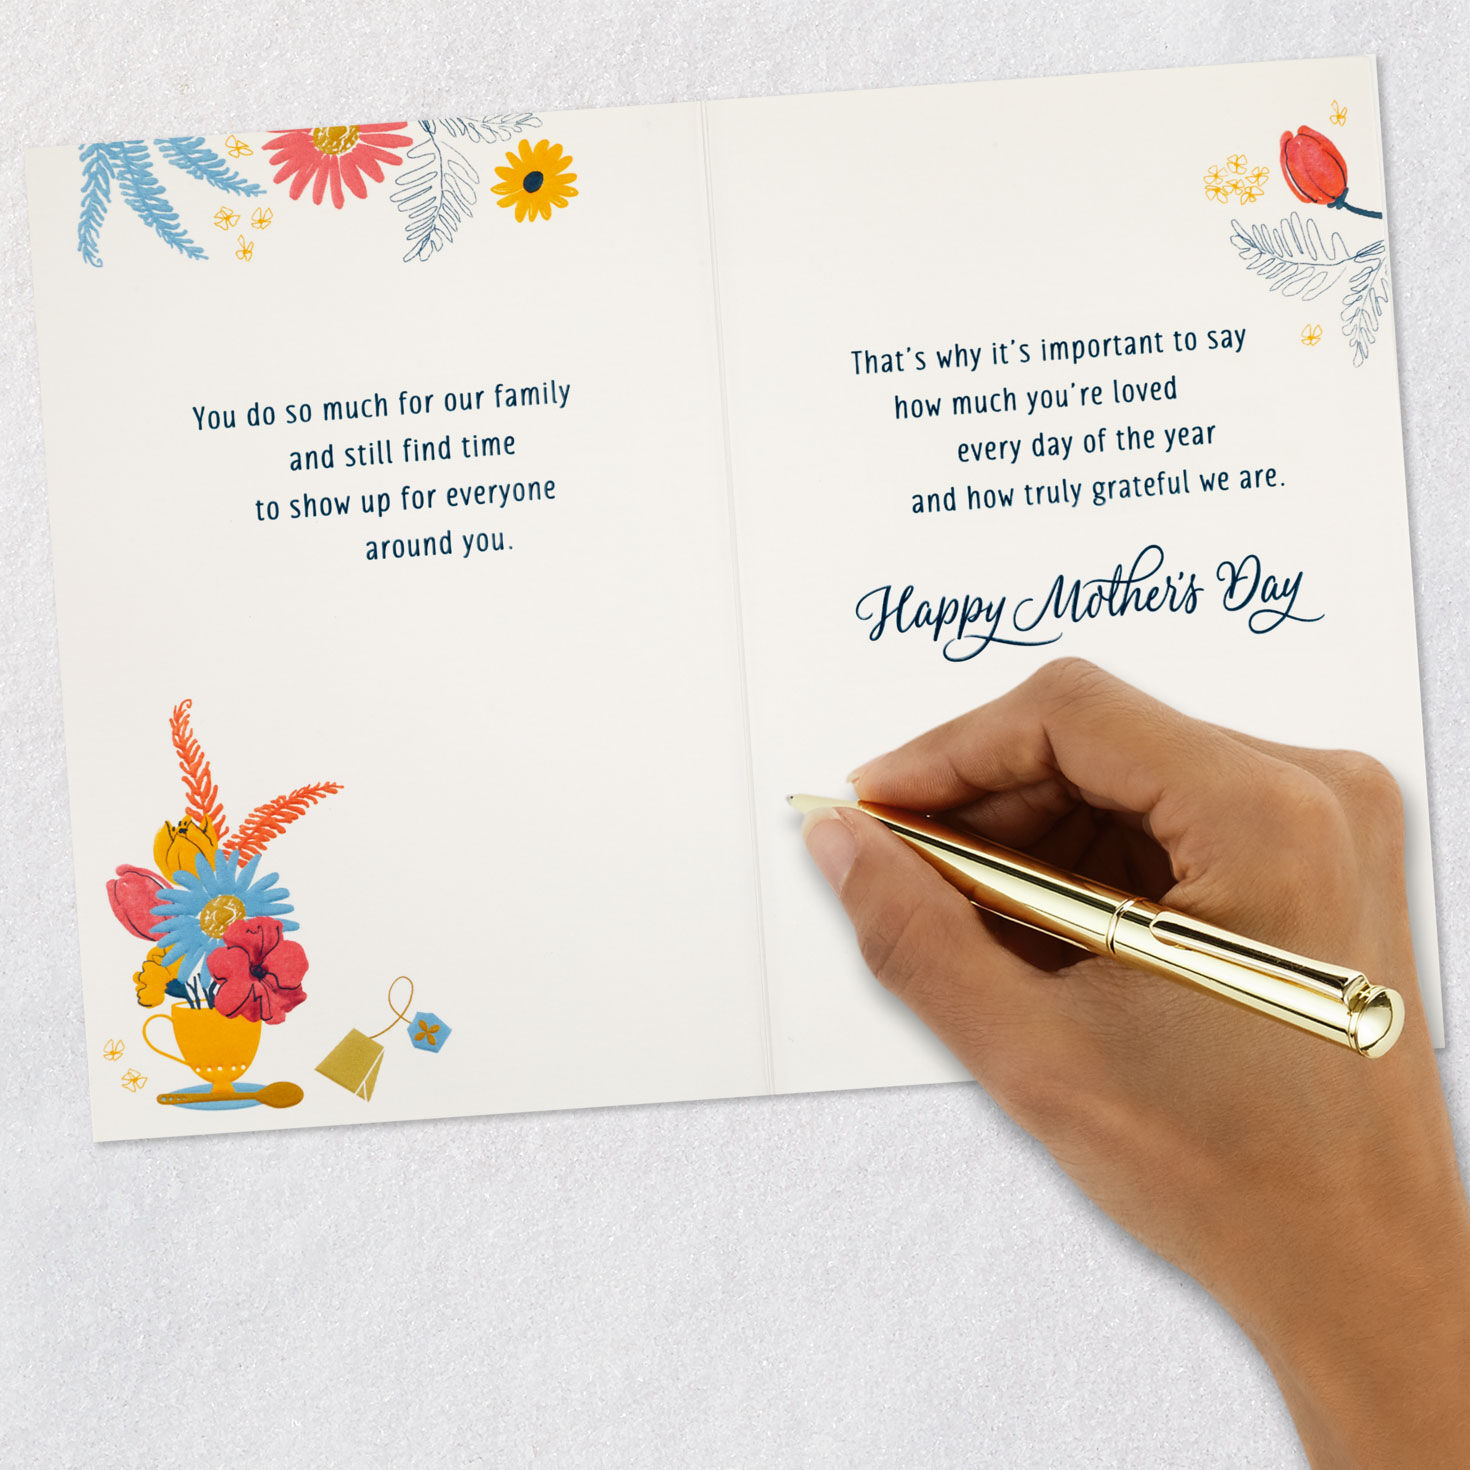 You do so much for our family
and still find time
to show up for everyone
around you.
That's why it's important to say
how much you're loved
every day of the year
and how truly grateful we are.
Happy Mother's Day